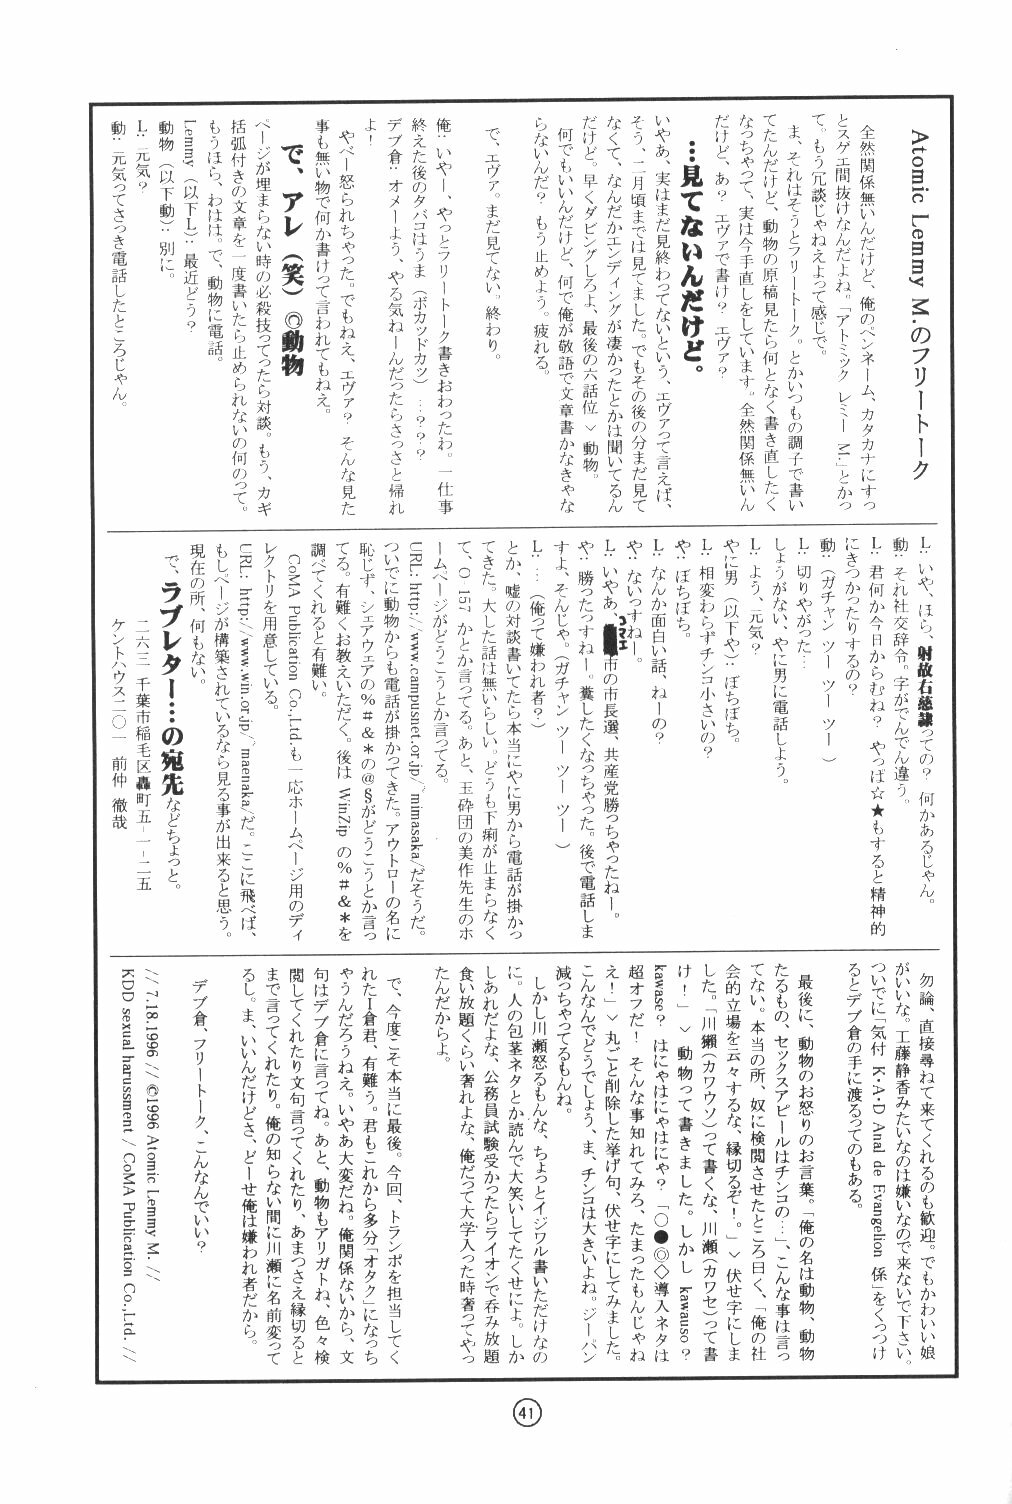 Atomic Lemmy M.のフリートーク
全然関係無いんだけど、俺のペンネーム、カタカナにすっ
とスゲエ間抜けなんだよね。「アトミック レミー M.」とかっ
て。もう冗談じゃねえよって感じで。
ま、それはそうとフリートーク。とかいつもの調子で書い
てたんだけど、動物の原稿見たら何となく書き直したく
なっちゃって、実は今手直しをしています。全然関係無いん
だけど、あ？ エヴァで書け？ エヴァ？
…見てないんだけど。
いやあ、実はまだ見終わってないという、エヴァって言えば、
そう、二月頃までは見てました。でもその後の分まだ見て
なくて、なんだかエンディングが凄かったとかは聞いてるん
だけど。早くダビングしろよ、最後の六話位 > 動物。
何でもいいんだけど、何で俺が敬語で文章書かなきゃな
らないんだ？ もう止めよう。疲れる。
で、エヴァ。まだ見てない。終わり。
俺：いやー、やっとフリートーク書きおわったわ。一仕事
終えた後のタバコはうま（ボカッドカッ）…？？？
デブ倉：オメーよう、やる気ねーんだったらさっさと帰れ
よ！
やべー怒られちゃった。でもねえ、エヴァ？ そんな見た
事も無い物で何か書けって言われてもねえ。
で、アレ（笑）◎動物
ページが埋まらない時の必殺技ってったら対談。もう、カギ
括弧付きの文章を一度書いたら止められないの何のって。
もうほら、わはは。で、動物に電話。
Lemmy（以下L）：最近どう？
動物（以下動）：別に。
L：元気？
動：元気ってさっき電話したところじゃん。
L：いや、ほら、射故右慈隷っての？ 何かあるじゃん。
動：それ社交辞令。字がでんでん違う。
L：君何か今日からむね？ やっぱ☆★もすると精神的
にきつかったりするの？
動：（ガチャン ツー ツー ツー ）
L：切りやがった…
しょうがない、やに男に電話しよう。
L：よう、元気？
やに男（以下や）：ぼちぼち。
L：相変わらずチンコ小さいの？
や：ぼちぼち。
L：なんか面白い話、ねーの？
や：ないっすねー。
L：いやあ、市の市長選、共産党勝っちゃったねー。
や：勝ったっすねー。糞したくなっちゃった。後で電話しま
すよ、そんじゃ。（ガチャン ツー ツー ツー ）
L：…（俺って嫌われ者？）
とか、嘘の対談書いてたら本当にやに男から電話が掛かっ
てきた。大した話は無いらしい。どうも下痢が止まらなく
て、O-157 かとか言ってる。あと、玉砕団の美作先生のホ
ームページがどうこうとか言ってる。
URL: http://www.campusnet.or.jp/~mimasaka/だそうだ。
ついでに動物からも電話が掛かってきた。アウトローの名に
恥じず、シェアウェアの%＃＆＊の@§がどうこうとか言っ
てる。有難くお教えいただく。後は WinZip の%＃＆＊を
調べてくれると有難い。
CoMA Publication Co.,Ltd.も一応ホームページ用のディ
レクトリを用意している。
URL: http://www.win.or.jp/~maenaka/だ。ここに飛べば、
もしページが構築されているなら見る事が出来ると思う。
現在の所、何もない。
で、ラブレター…の宛先などちょっと。
二六三 千葉市稲毛区轟町五-一-二五
ケントハウス二〇一 前仲 徹哉
勿論、直接尋ねて来てくれるのも歓迎。でもかわいい娘
がいいな。工藤静香みたいなのは嫌いなので来ないで下さい。
ついでに「気付 K・A・D Anal de Evangelion 係」をくっつけ
るとデブ倉の手に渡るってのもある。
最後に、動物のお怒りのお言葉。「俺の名は動物、動物
たるもの、セックスアピールはチンコの…」、こんな事は言っ
てない。本当の所、奴に検閲させたところ曰く、「俺の社
会的立場を云々するな、縁切るぞ！。」> 伏せ字にしま
した。「川獺（カワウソ）って書くな、川瀬（カワセ）って書
け！」> 動物って書きました。しかし kawauso？
kawase？ はにやはにゃはにゃ？ 「○●◎◇導入ネタは
超オフだ！ そんな事知れてみろ、たまったもんじゃね
え！」> 丸ごと削除した挙げ句、伏せ字にしてみました。
こんなんでどうでしょう、ま、チンコは大きいよね。ジーパン
減っちゃってるもんね。
しかし川瀬怒るもんな、ちょっとイジワル書いただけなの
に。人の包茎ネタとか読んで大笑いしてたくせによ。しか
しあれだよな、公務員試験受かったらライオンで呑み放題
食い放題くらい奢れよな、俺だって大学入った時奢ってやっ
たんだからよ。
で、今度こそ本当に最後。今回、トランポを担当してく
れたI倉君、有難う。君もこれから多分「オタク」になっち
ゃうんだろうねえ。いやあ大変だね。俺関係ないから、文
句はデブ倉に言ってね。あと、動物もアリガトね、色々検
閲してくれたり文句言ってくれたり、あまつさえ縁切ると
まで言ってくれたり。俺の知らない間に川瀬に名前変って
るし。ま、いいんだけどさ、どーせ俺は嫌われ者だから。
デブ倉、フリートーク、こんなんでいい？
// 7.18.1996 // ©1996 Atomic Lemmy M. //
KDD sexual harussment / CoMA Publication Co.,Ltd. //
41